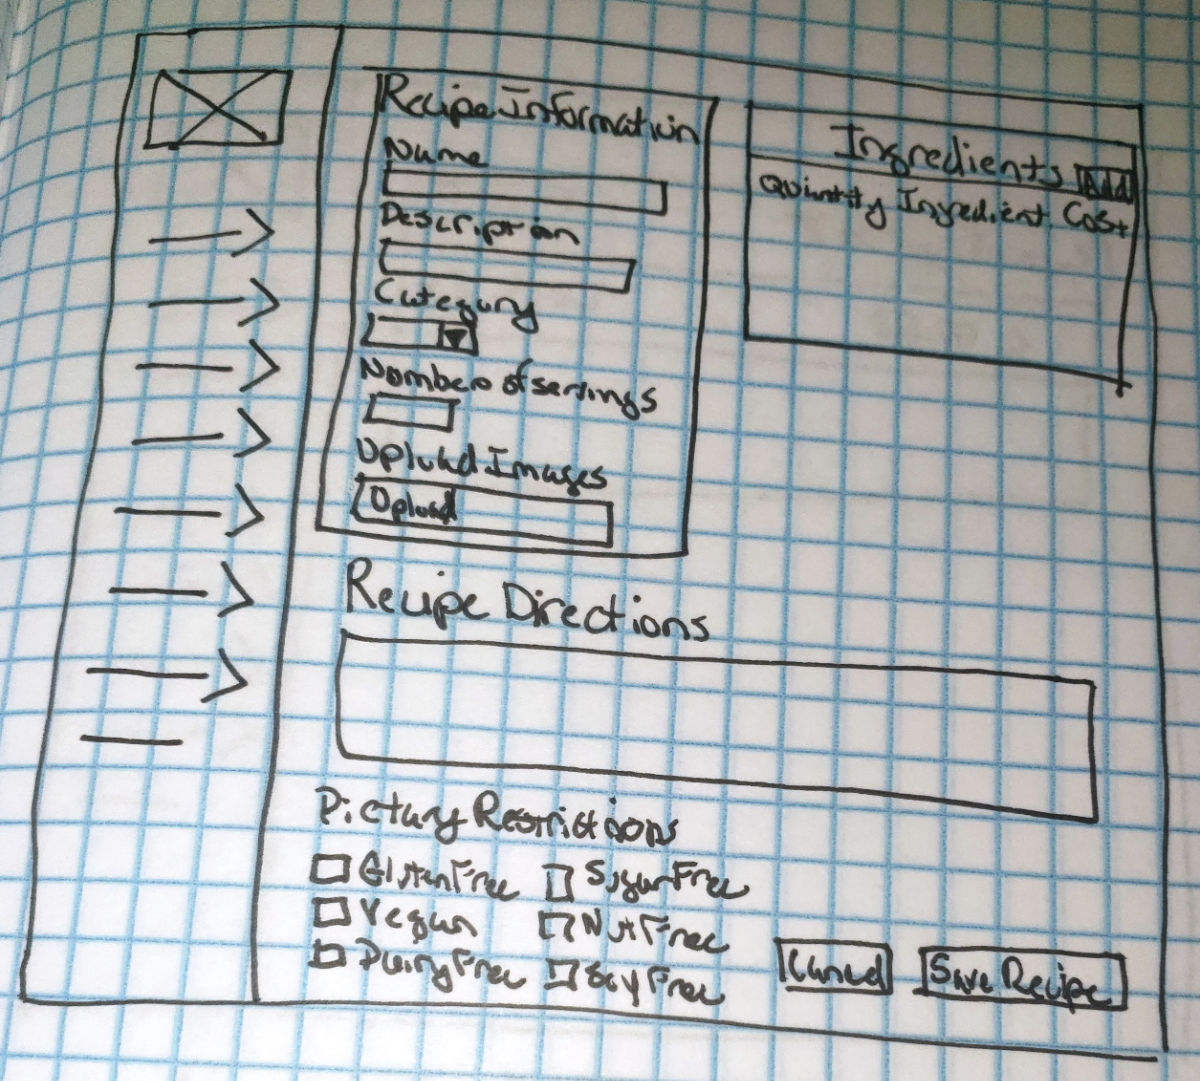 Recipe Information
Name
Description
Category
Number of servings
Upload Images
Upload
Ingredients Add
Quantity Ingredient Cost
Recipe Directions
Dietary Restrictions
Gluten Free Sugar Free
Vegan Nut Free
Dairy Free Soy Free
Cancel Save Recipe